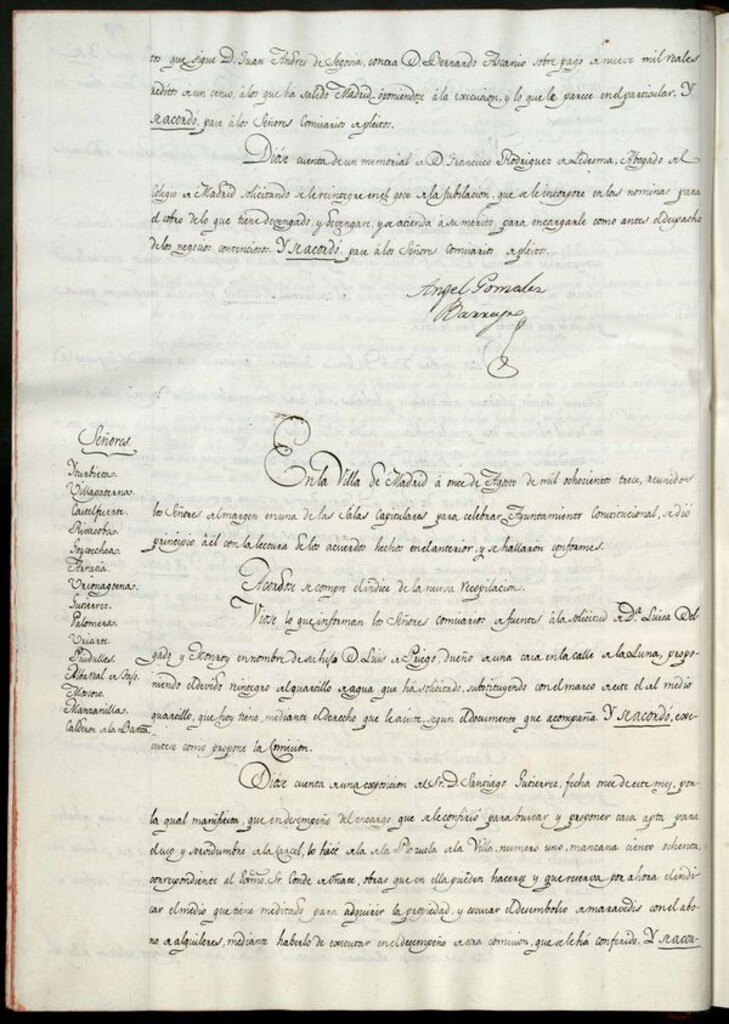 tos que sigue D. Juan Andres de Segovia, contra D. Bernardo Ascanio sobre pago de nueve mil reales
reditos de un censo, à los que ha salido Madrid oponiendose à la execucion, y lo que le parece en el particular. Y
se acordó, pase à los Señores Comisarios de pleitos.
Diose cuenta de un memorial de D. Francisco Rodriguez de Ledesma, Abogado del
Colegio de Madrid solicitando se le reintegre en el goce de la jubilacion, que se le incorpore en las nominas para
el cobro de lo que tiene devengado, y devengare, y se atienda à su merito, para encargarle como antes el despacho
de los negocios contenciosos. Y se acordó, pase à los Señores Comisarios de pleitos.
Angel Gonzalez
Barreyro
Señores.
Yturbieta.
Villapaterna.
Castelfuerte.
Rivacoba.
Goycoechea.
Arratia.
Urionagoena.
Gutierrez.
Palomera.
Uriarte.
Puidulles.
Moscoso.
Manzanilla.
Calderon de la Barca.
En la Villa de Madrid à once de Agosto de mil ochocientos trece, reunidos
los Señores del margen en una de las Salas Capitulares para celebrar Ayuntamiento Constitucional, se dió
principio à él con la lectura de los acuerdos hechos en el anterior, y se hallaron conformes.
Acordose se compre el indice de la nueva recopilacion.
Viose lo que informan los Señores comisarios de fuentes à la solicitud de D.ª Luisa Del
gado y Monroy en nombre de su hijo D. Luis de Priego, dueño de una casa en la calle de la Luna, propo-
niendo el devido reintegro del quartillo de agua que ha solicitado, substituyendo con el marco de este el del medio
quartillo, que hoy tiene, mediante el derecho que le asiste, segun el documento que acompaña. Y se acordó, exe-
cutese como propone la Comision.
Diose cuenta de una exposicion del Sr. D. Santiago Gutierrez, fecha once de este mes, por
la qual manifiesta, que en desempeño del encargo que se le confirió para buscar y proponer casa apta para
el uso y servidumbre de la Carcel, lo hace de la de la Plazuela de la Villa, numero uno, manzana ciento ochenta,
correspondiente al Exmo. Sr. Conde de Oñate, obras que en ella pueden hacerse y que reserva por ahora el indi-
car el medio que tiene meditado para adquirir la propiedad, y escusar el desembolso de maravedis con el abo-
no de alquileres, mediante haberlo de executar en el desempeño de otra comision, que se le há conferido. Y se acor-